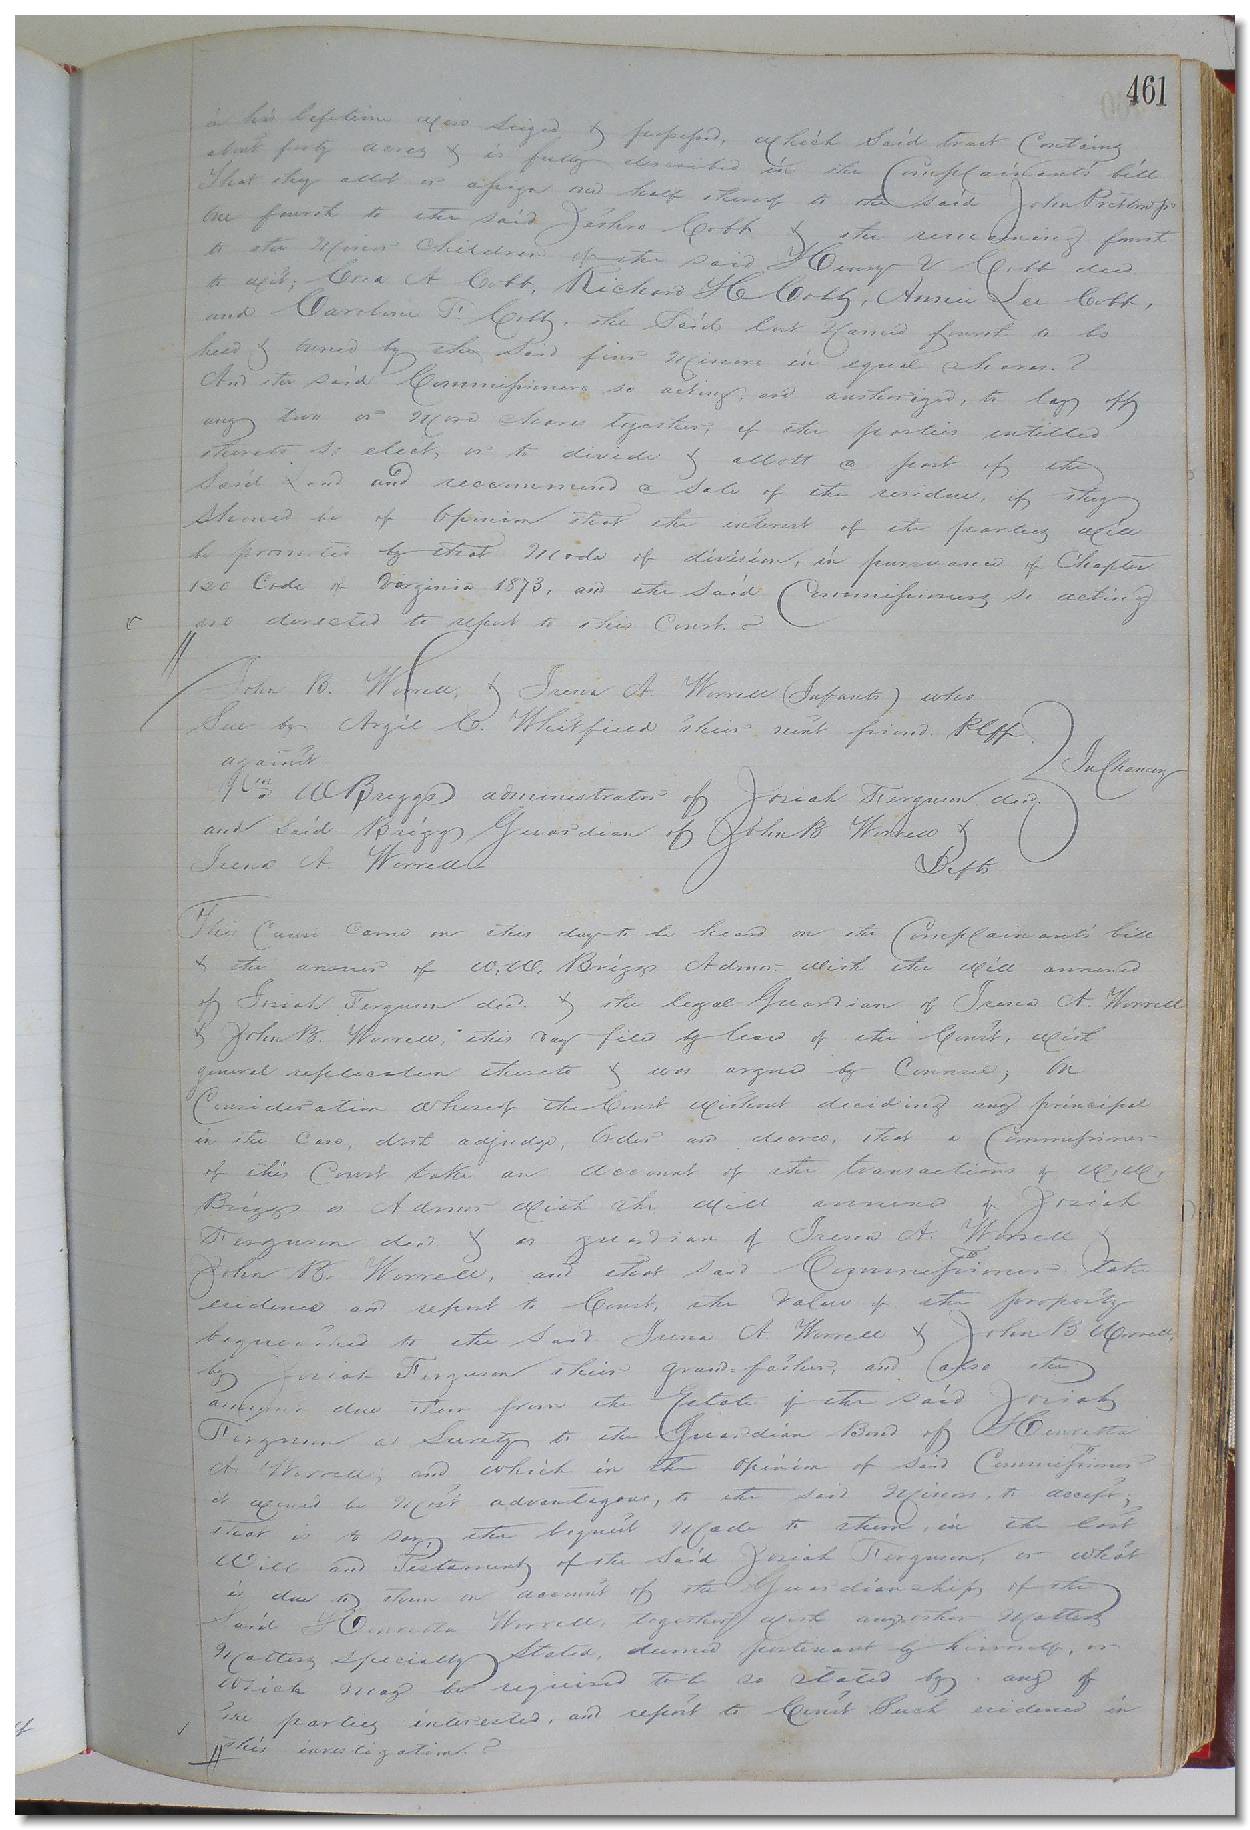 461
in his lifetime was seized & possessed, which said tract Contains
about forty acres & is fully described in the Complainants bill
That they allot or assign one half thereof to the said John Pretlow Jr
One fourth to the said Jethro Cobb & the remaining fourth
to the Minor Children of the said Henry V Cobb decd
to wit; Cora A Cobb, Richard H Cobb, Annie Lee Cobb,
and Caroline T. Cobb, the Said last Named fourth to be
held & owned by the Said four Minors in equal shares.
And the said Commissioners so acting, are authorized, to lay off
any two or More shares together, if the parties entitled
thereto so elect, or to divide & allott a part of the
Said Land and recommend a Sale of the residue, if they
Should be of Opinion that the interest of the parties will
be promoted by that Mode of division, in pursuance of Chapter
120 Code of Virginia 1873, and the Said Commissioners so acting
are directed to report to this Court.
John B. Worrell, & Irena A. Worrell (Infants) who
Sue by Argil C. Whitfield their next friend Plffs
against
Wm W Briggs administrator of Josiah Ferguson decd.
In Chancery
and Said Briggs Guardian of John B Worrell &
Irena A. Worrell
Defts
This Cause Came on this day to be heard on the Complainants bill
& the answer of W. W. Briggs Admor with the Will annexed
of Josiah Ferguson decd. & the legal Guardian of Irena A. Worrell
& John B. Worrell, this day filed by leave of the Court, with
general replication thereto & was argued by Counsel; On
Consideration whereof the Court without deciding any principal
in the Case, doth adjudge, Order and decree, that a Commissioner
of this Court take an account of the transactions of W. W.
Briggs as Admor with the Will annexed of Josiah
Ferguson decd & as guardian of Irena A. Worrell &
John B. Worrell, and that said Commissioner take
evidence and report to Court, the Value of the property
bequeathed to the Said Irena A Worrell & John B Worrell,
by Josiah Ferguson their grand-father, and also the
amount due them from the Estate of the said Josiah
Ferguson as Surety to the Guardian Bond of Henrietta
A. Worrell, and which in the opinion of said Commissioner
it would be Most advantageous, to the said Minors, to accept,
that is to say, the bequest Made to them, in the last
Will and Testament of the Said Josiah Ferguson, or what
is due to them on account of the Guardianship of the
Said Henrietta Worrell, together with any other Matters
Matters Specially Stated, deemed pertinent by himself, or
Which May be required to be so stated by any of
the parties interested, and report to Court Such evidence in
this investigation.